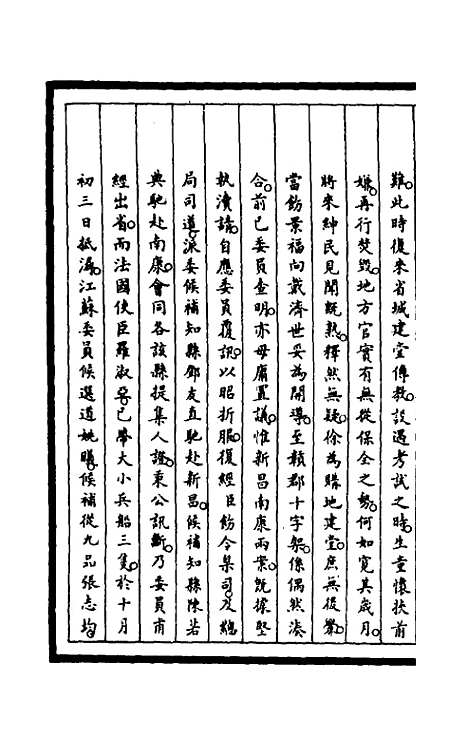 難。此時復來省城建堂傳教。設遇考試之時。生童懷挾前
嫌。再行焚毀。地方官實有無從保全之勢。何如寬其歲月。
將來紳民見聞既熟。釋然無疑。徐為購地建堂。庶無後釁。
當飭景福向戴濟世妥為開導。至贛郡十字架。係偶然湊
合。前已委員查明。亦毋庸置議。惟新昌南康兩案。既據堅
執瀆請。自應委員覆訊。以昭折服。復經臣飭令臬司。及總
局司道。派委候補知縣鄧友直馳赴新昌。候補知縣陳若
典馳赴南康。會同各該縣提集人證。秉公訊斷。乃委員甫
經出省。而法國使臣羅淑亞。已帶大小兵船三隻。於十月
初三日抵潯。江蘇委員候選道姚曦。候補從九品張志均。